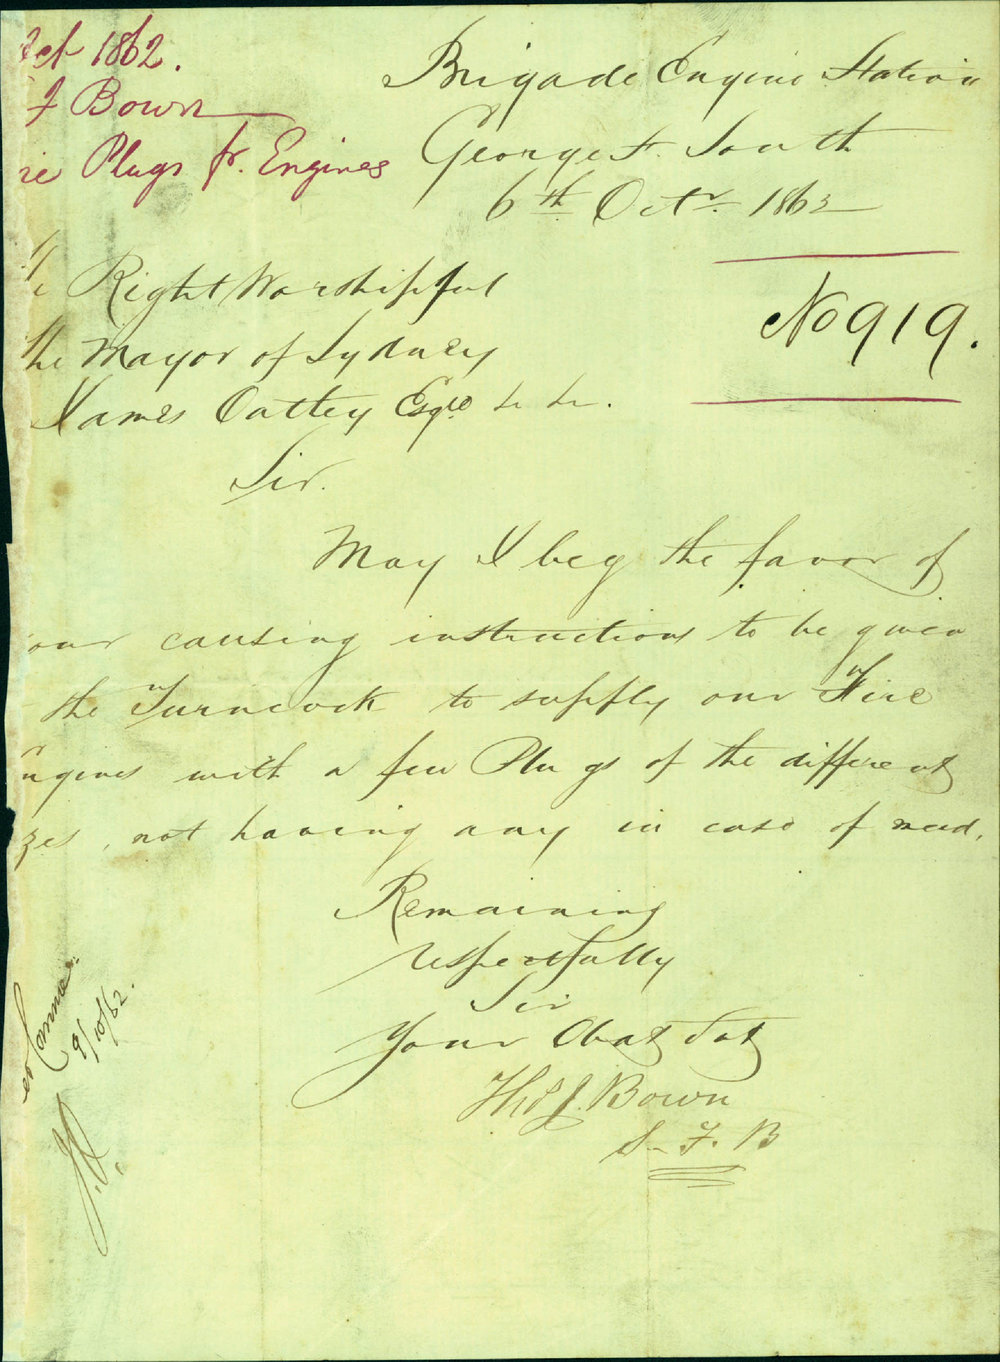 Oct 1862.
J Bown
re Plugs fr. Engines
Brigade Engine Station
George St. South
6th Octr 1862
Right Worshipful
the Mayor of Sydney
James Oatley Esqre
Sir.
No 919.
May I beg the favor of
our causing instructions to be given
the Turncock to supply our Fire
ngines with a few Plugs of the different
zes, not having any in case of need,
Remaining
respectfully
Sir
Your Obat Svt
Thos J. Bown
S. F. B
9/10/62.